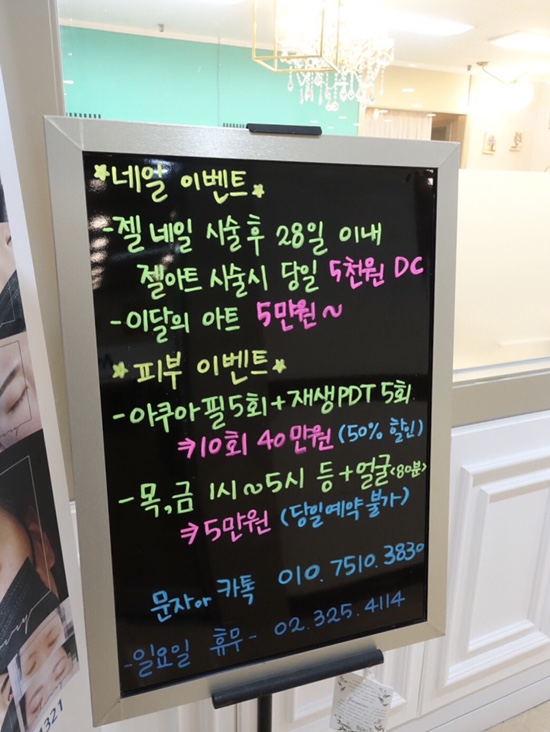 *네일 이벤트*
-젤네일 시술후 28일 이내
젤아트 시술시 당일 5천원 DC
-이달의 아트 5만원~
*피부 이벤트*
-아쿠아필5회+재생PDT 5회
→10회 40만원(50% 할인)
-목,금 1시~5시 등+얼굴<80분>
→5만원 (당일예약불가)
문자or카톡 010.7510.3830
-일요일 휴무- 02.325.4114
1321